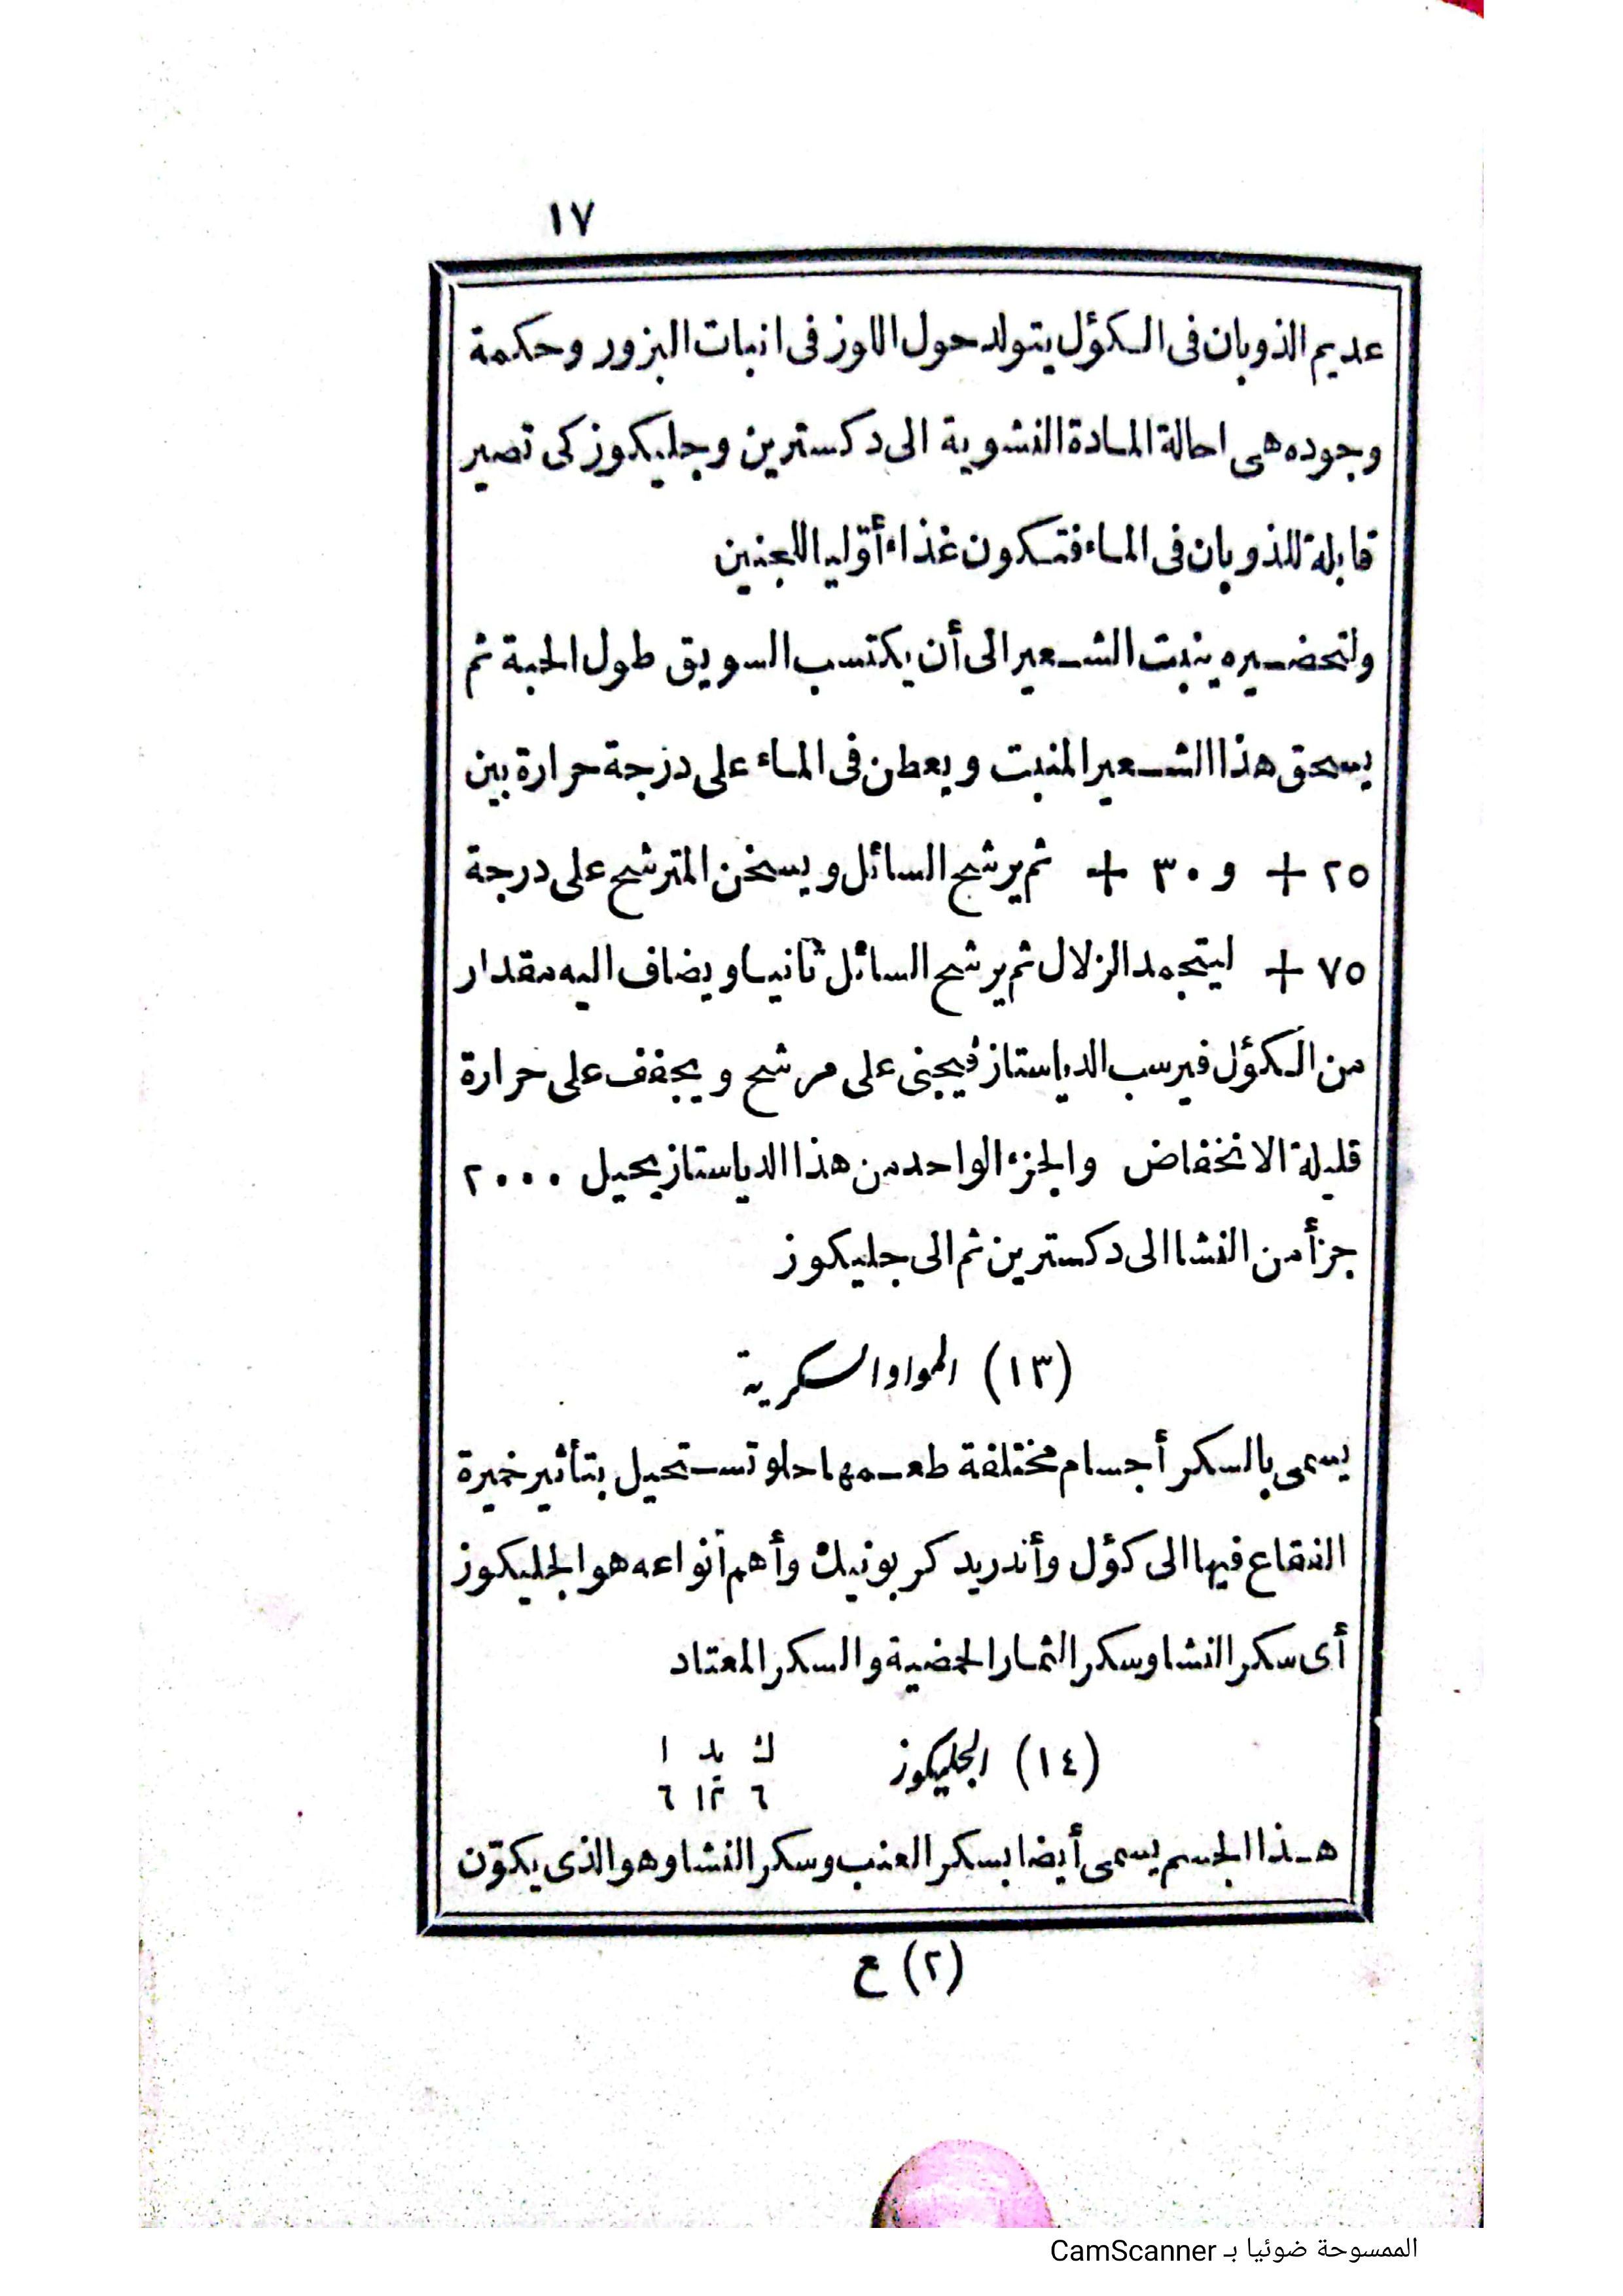 ١٧
عديم الذوبان فى الكؤل يتولد حول اللوز فى انبات البزور وحكمة
وجوده هى احالة المادة النشوية الى دكسترين وجليكوز كى تصير
قابلة للذوبان فى الماء فتكون غذاء أوّليا للجنين
ولتحضيره ينبت الشعير الى أن يكتسب السويق طول الحبة ثم
يسحق هذا الشعير المنبت ويعطن فى الماء على درجة حرارة بين
٢٥ + و ٣٠ + ثم يرشح السائل ويسخن المترشح على درجة
٧٥ + ليتجمد الزلال ثم يرشح السائل ثانيا ويضاف اليه مقدار
من الكؤل فيرسب الدياستاز فيجنى على مرشح ويجفف على حرارة
قليلة الانخفاض والجزء الواحد من هذا الدياستاز يحيل ٢٠٠٠
جزأ من النشا الى دكسترين ثم الى جليكوز
(١٣) المواد السكرية
يسمى بالسكر أجسام مختلفة طعمها حلو تستحيل بتأثير خميرة
النقاع فيها الى كؤل وأندريد كربونيك وأهم أنواعه هو الجليكوز
أى سكر النشا وسكر الثمار الحمضية والسكر المعتاد
(١٤) الجليكوز ك يد ا
٦ ١٢ ٦
هذا الجسم يسمى أيضا بسكر العنب وسكر النشا وهو الذى يكوّن
(٢) ع
الممسوحة ضوئيا بـ CamScanner